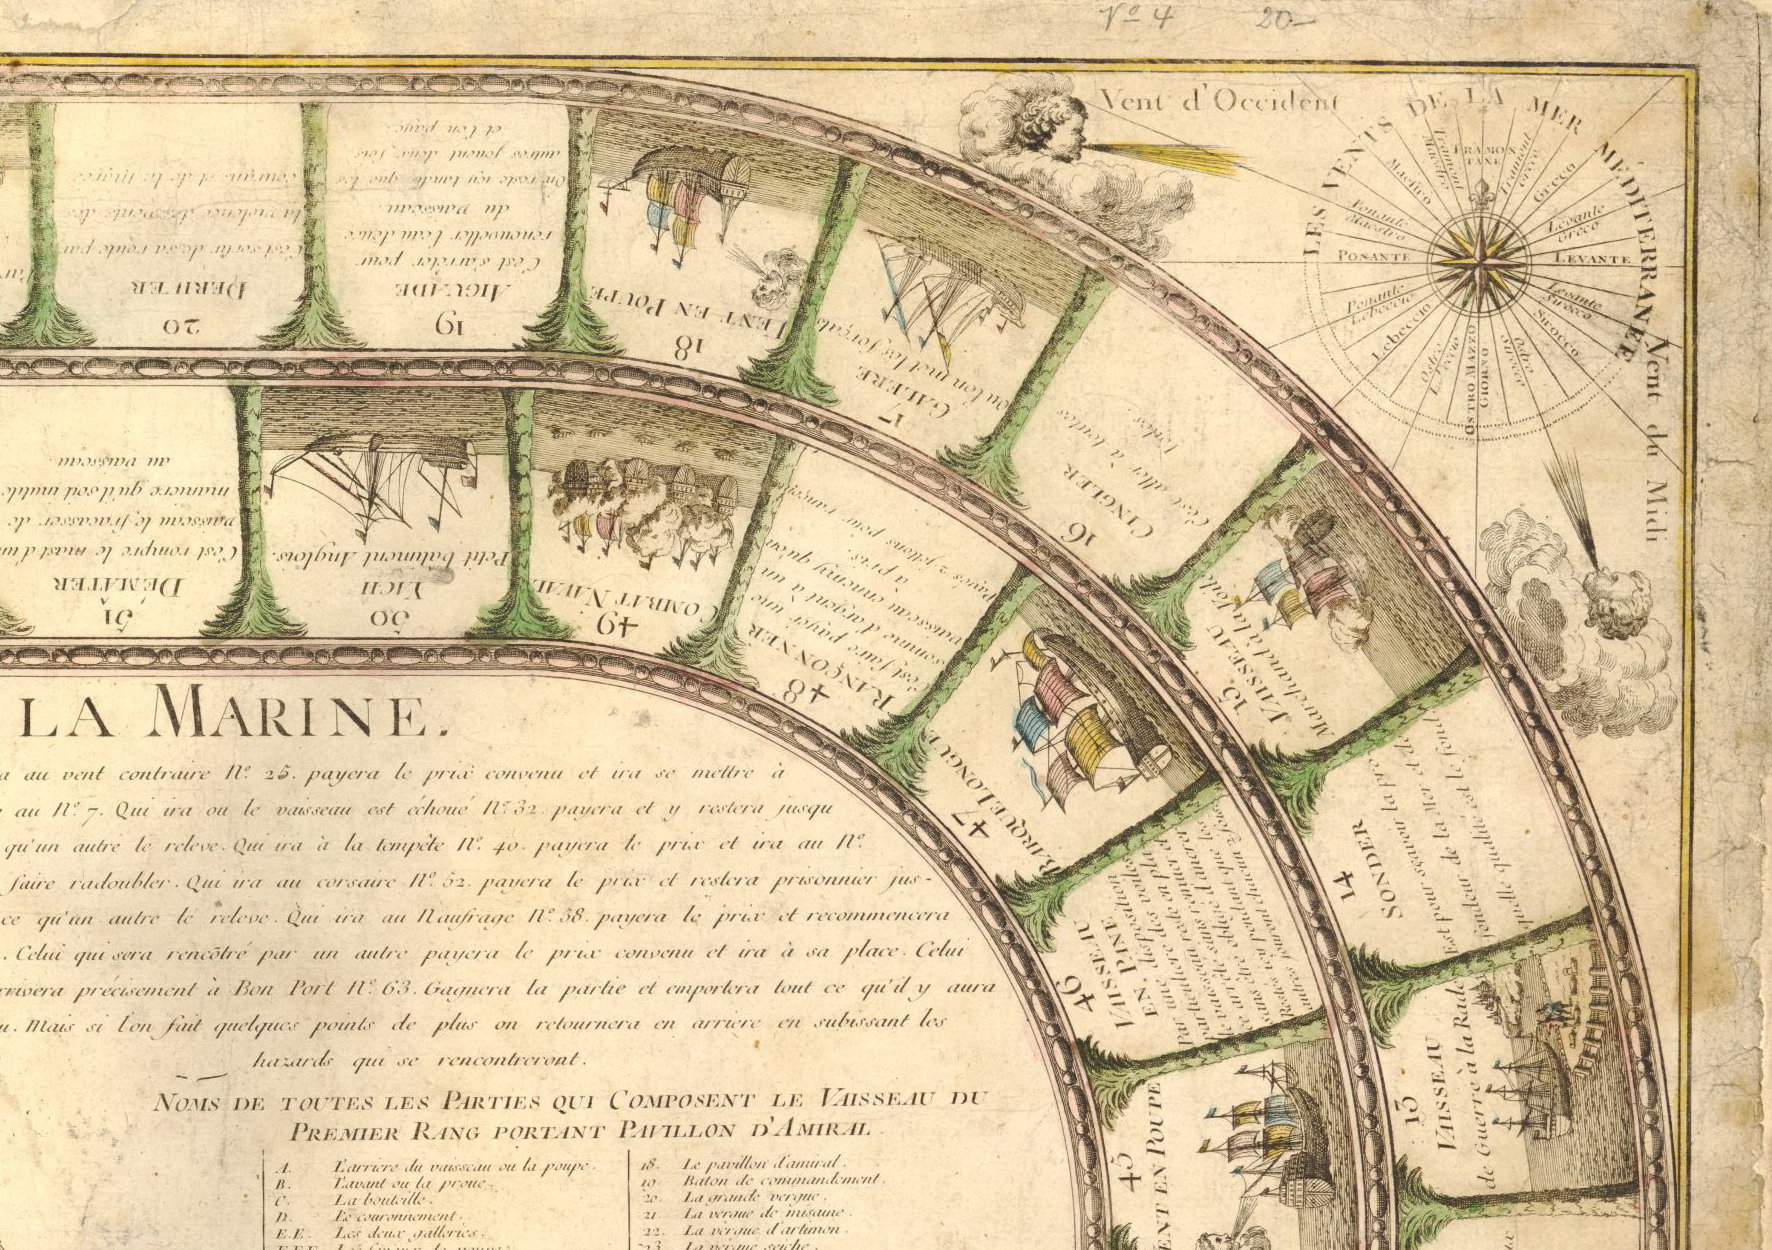 Nº 4 20-
Vent d'Occident
LES VENTS DE LA MER MÉDITERRANÉE
TRAMONTANE
Greco
Levante Greco
LEVANTE
Levante Sirocco
Sirocco
Ostro Sirocco
OSTRO MAZZO GIORNO
Lebeccio
Ponante Lebeccio
POSANTE
Ponante Maestro
Maestro
Vent du Midi
20
DERIVER
C'est sortir de sa route par
la violence des vents des
courans et de la marée
19
AIGUADE
C'est s'arrêter pour
renouveller l'eau douce
du vaisseau.
On reste icy tandis que les
autres jouent deux fois
et l'on paye.
18
VENT EN POUPE
17
GALERE
ou l'on met les forçats
16
CINGLER
C'est aller à toutes
voiles.
15.
VAISSEAU
Marchand à la Voile
14
SONDER
est pour sçavoir la pro
fondeur de la Mer et de
quelle qualité est le fond
13
VAISSEAU
de Guerre à la Rade
51
DEMÂTER
C'est rompre le mast d'un
vaisseau le fracasser de
maniere qu'il soit inutile
au vaisseau
50
YICH
Petit bâtiment Anglois.
49
COMBAT NAVAL
48
RANÇONNER
c'est faire payer une
somme d'argent à un
vaisseau ennemy qu'on
à pris.
Payés 2 jettons pour rançon
47
BARQUE LONGUE
46
VAISSEAU
EN PANE
Par une disposition
particuliere des voiles
45
ENT EN POUPE
LA MARINE.
a au vent contraire Nº 25. payera le prix convenu et ira se mettre à
au Nº 7. Qui ira ou le vaisseau est échoué Nº 32. payera et y restera jusqu
qu'un autre le releve. Qui ira à la tempête Nº. 40. payera le prix et ira au Nº.
faire radoubler. Qui ira au corsaire Nº 52. payera le prix et restera prisonnier jus-
ce qu'un autre le releve. Qui ira au Naufrage Nº 58. payera le prix et recommencera
. Celui qui sera rencôtré par un autre payera le prix convenu et ira à sa place. Celui
rrivera précisement à Bon Port Nº 63. Gagnera la partie et emportera tout ce qu'il y aura
u. Mais si l'on fait quelques points de plus on retournera en arriere en subissant les
hazards qui se rencontreront.
NOMS DE TOUTES LES PARTIES QUI COMPOSENT LE VAISSEAU DU
PREMIER RANG PORTANT PAVILLON D'AMIRAL
A. L'arriere du vaisseau ou la poupe.
B. L'avant ou la proue.
C. La bouteille.
D. Le couronnement.
E.E. Les deux galleries.
18. Le pavillon d'amiral.
19. Bâton de commandement.
20. La grande vergue.
21. La vergue de misaine.
22. La vergue d'artimon.
23. La vergue seiche.